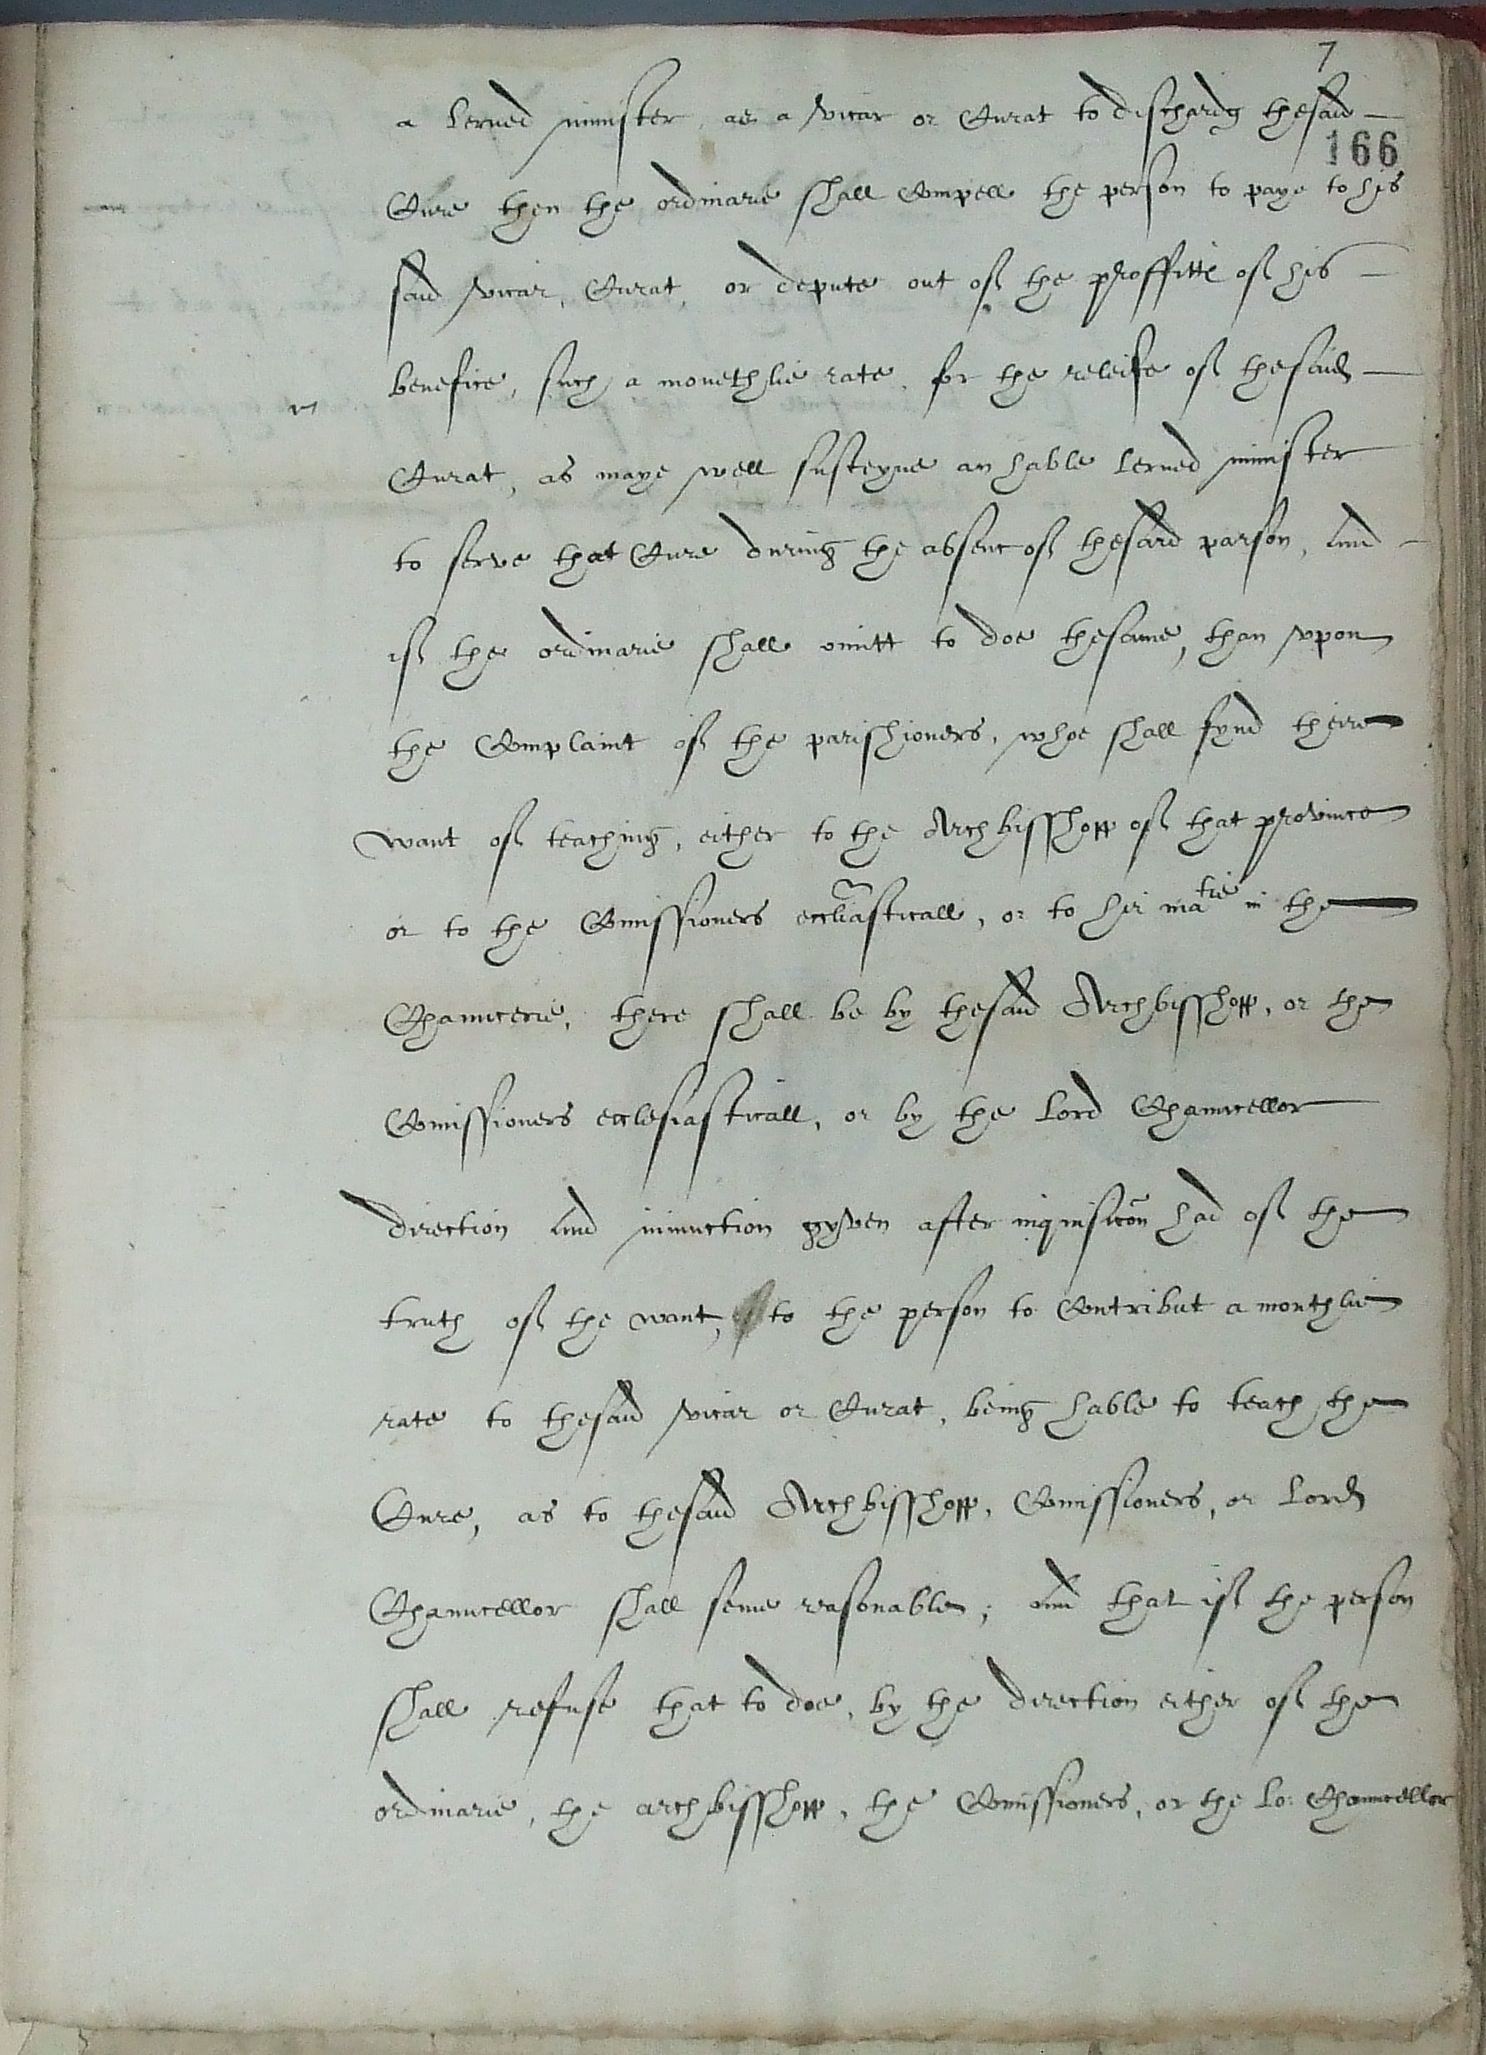 7
a lerned minister, as a vicar or Curat to dischardg thesaid
166
Cure then the ordinarie shall Compell the person to paye to his
said vicar, Curat, or depute out of the proffitte of his
benefice, such a monethlie rate, for the releife of thesaid
Curat, as maye well susteyne an hable lerned minister
to serve that Cure during the absenc of thesaid parson, And
if the ordinarie shall omitt to doe thesame, than vpon
the Complaint of the parishioners, whoe shall fynd theire
want of teaching, either to the Archbisshopp of that province
or to the Comissioners eccliasticall, or to her matie in the
Chauncerie, there shall be by thesaid Archbisshopp, or the
Comissioners ecclesiasticall, or by the Lord Chauncellor
direction And iniunction gyven after inquisicon had of the
truth of the want, to the person to Contribut a monthlie
rate to thesaid vicar or Curat, being hable to teach the
Cure, as to thesaid Archbisshopp, Comissioners, or Lord
Chauncellor shall seme reasonable; And that if the person
shall refuse that to doe, by the direction either of the
ordinarie, the archbisshopp, the Comissioners, or the Lo: Chauncellor